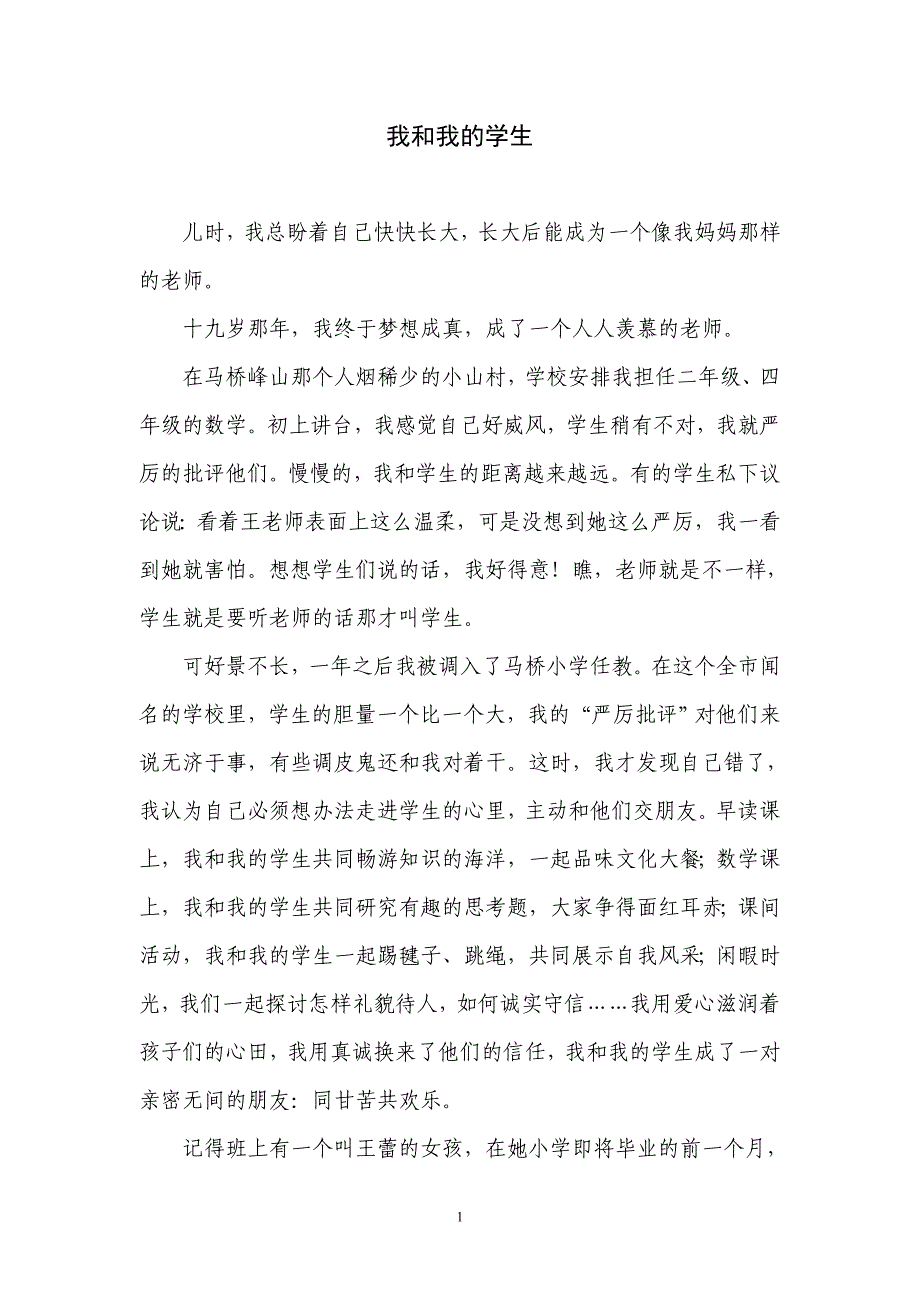 我和我的学生
儿时，我总盼着自己快快长大，长大后能成为一个像我妈妈那样
的老师。
十九岁那年，我终于梦想成真，成了一个人人羡慕的老师。
在马桥峰山那个人烟稀少的小山村，学校安排我担任二年级、四
年级的数学。初上讲台，我感觉自己好威风，学生稍有不对，我就严
厉的批评他们。慢慢的，我和学生的距离越来越远。有的学生私下议
论说：看着王老师表面上这么温柔，可是没想到她这么严厉，我一看
到她就害怕。想想学生们说的话，我好得意！瞧，老师就是不一样，
学生就是要听老师的话那才叫学生。
可好景不长，一年之后我被调入了马桥小学任教。在这个全市闻
名的学校里，学生的胆量一个比一个大，我的“严厉批评”对他们来
说无济于事，有些调皮鬼还和我对着干。这时，我才发现自己错了，
我认为自己必须想办法走进学生的心里，主动和他们交朋友。早读课
上，我和我的学生共同畅游知识的海洋，一起品味文化大餐；数学课
上，我和我的学生共同研究有趣的思考题，大家争得面红耳赤；课间
活动，我和我的学生一起踢毽子、跳绳，共同展示自我风采；闲暇时
光，我们一起探讨怎样礼貌待人，如何诚实守信……我用爱心滋润着
孩子们的心田，我用真诚换来了他们的信任，我和我的学生成了一对
亲密无间的朋友：同甘苦共欢乐。
记得班上有一个叫王蕾的女孩，在她小学即将毕业的前一个月，
1